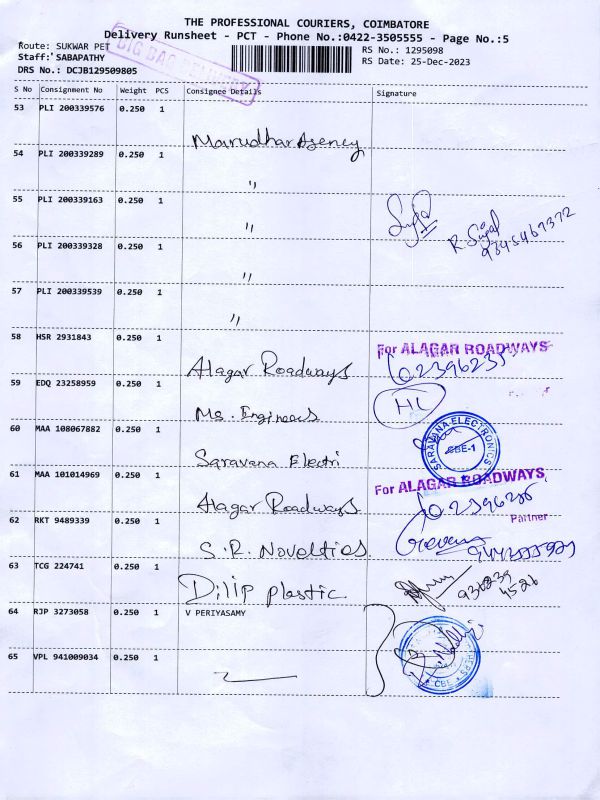 THE PROFESSIONAL COURIERS, COIMBATORE
Delivery Runsheet - PCT - Phone No.:0422-3505555 - Page No.:5
Route: SUKWAR PET
RS No.: 1295098
Staff: SABAPATHY
RS Date: 25-Dec-2023
DRS No.: DCJB129509805
BIG BAG DELIVERY
S No Consignment No Weight PCS Consignee Details Signature
53 PLI 200339576 0.250 1 Marudhar Agency
54 PLI 200339289 0.250 1 "
55 PLI 200339163 0.250 1 "
R. Sujal
9345467372
56 PLI 200339328 0.250 1 "
57 PLI 200339539 0.250 1 "
58 HSR 2931843 0.250 1 Alagar Roadways For ALAGAR ROADWAYS
59 EDQ 23258959 0.250 1 Ms. Engineers HL
60 MAA 108067882 0.250 1 Saravana Electri SARAVANA ELECTRONICS CBE-1
61 MAA 101014969 0.250 1 Alagar Roadways For ALAGAR ROADWAYS
Partner
62 RKT 9489339 0.250 1 S.R. Novelties
63 TCG 224741 0.250 1 Dilip plastic
936239
4526
64 RJP 3273058 0.250 1 V PERIYASAMY
65 VPL 941009034 0.250 1 CBE